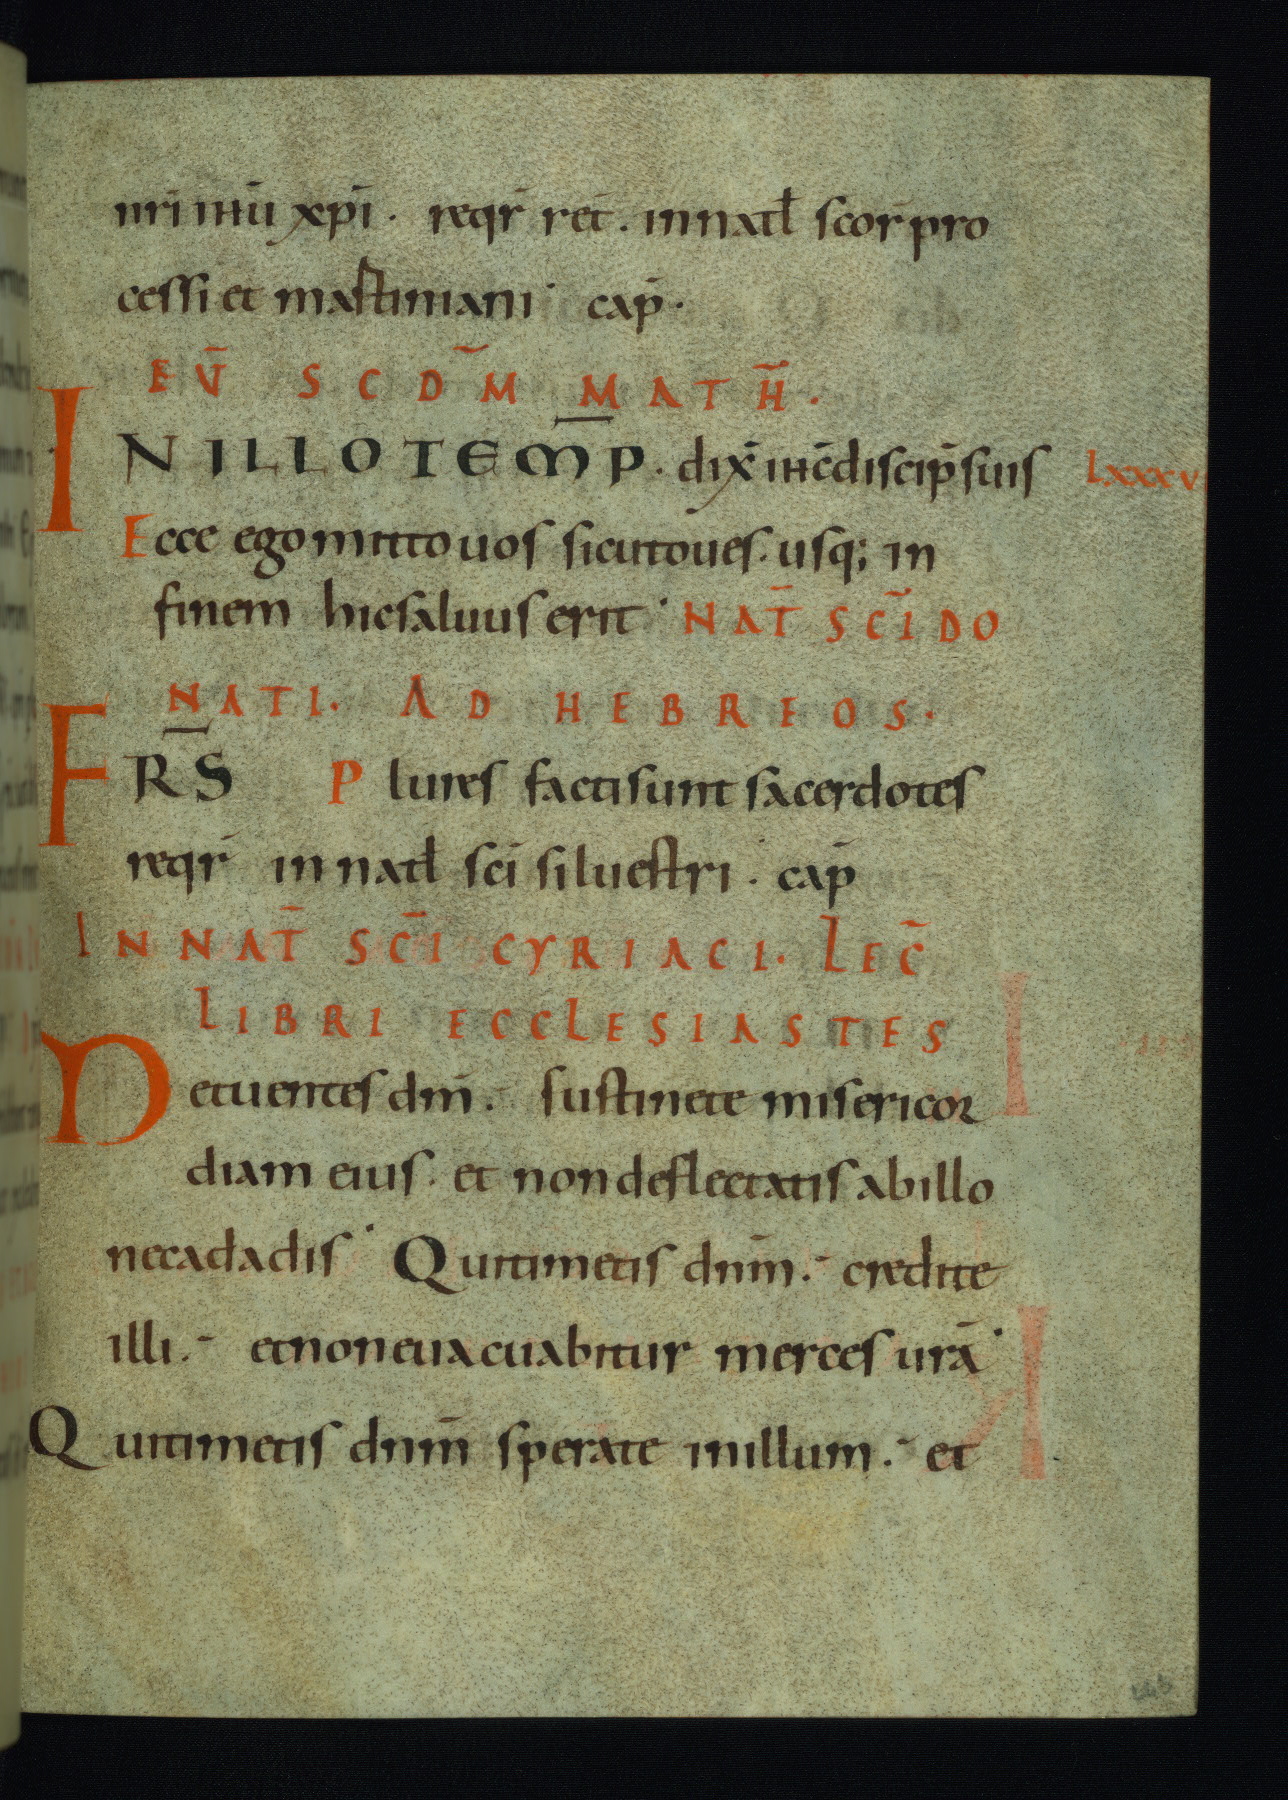 nr̄i ihū xp̄i. reqr̄ ret̄. in natł scor̄ pro
cessi et mastiniani. cap̄.
EV̄ SCDM̄ MATH̄.
IN ILLO TEMP̄. dix̄ ihc̄ discip̄ suis LXXXV
Ecce ego mitto uos sicut oues. usq; in
finem hic saluus erit. NAT̄ SC̄I DO
NATI. AD HEBREOS.
FRS̄ Plures facti sunt sacerdotes
reqr̄ in natł sc̄i siluestri. cap̄
IN NAT̄ SC̄I CYRIACI. LEC̄
LIBRI ECCLESIASTES
Metuentes dm̄. sustinete misericor
diam eius. et non deflectatis ab illo
ne cadadis. Qui timetis dnm̄. credite
illi. et non euacuabitur merces ur̄a.
Qui timetis dnm̄ sperate in illum. et